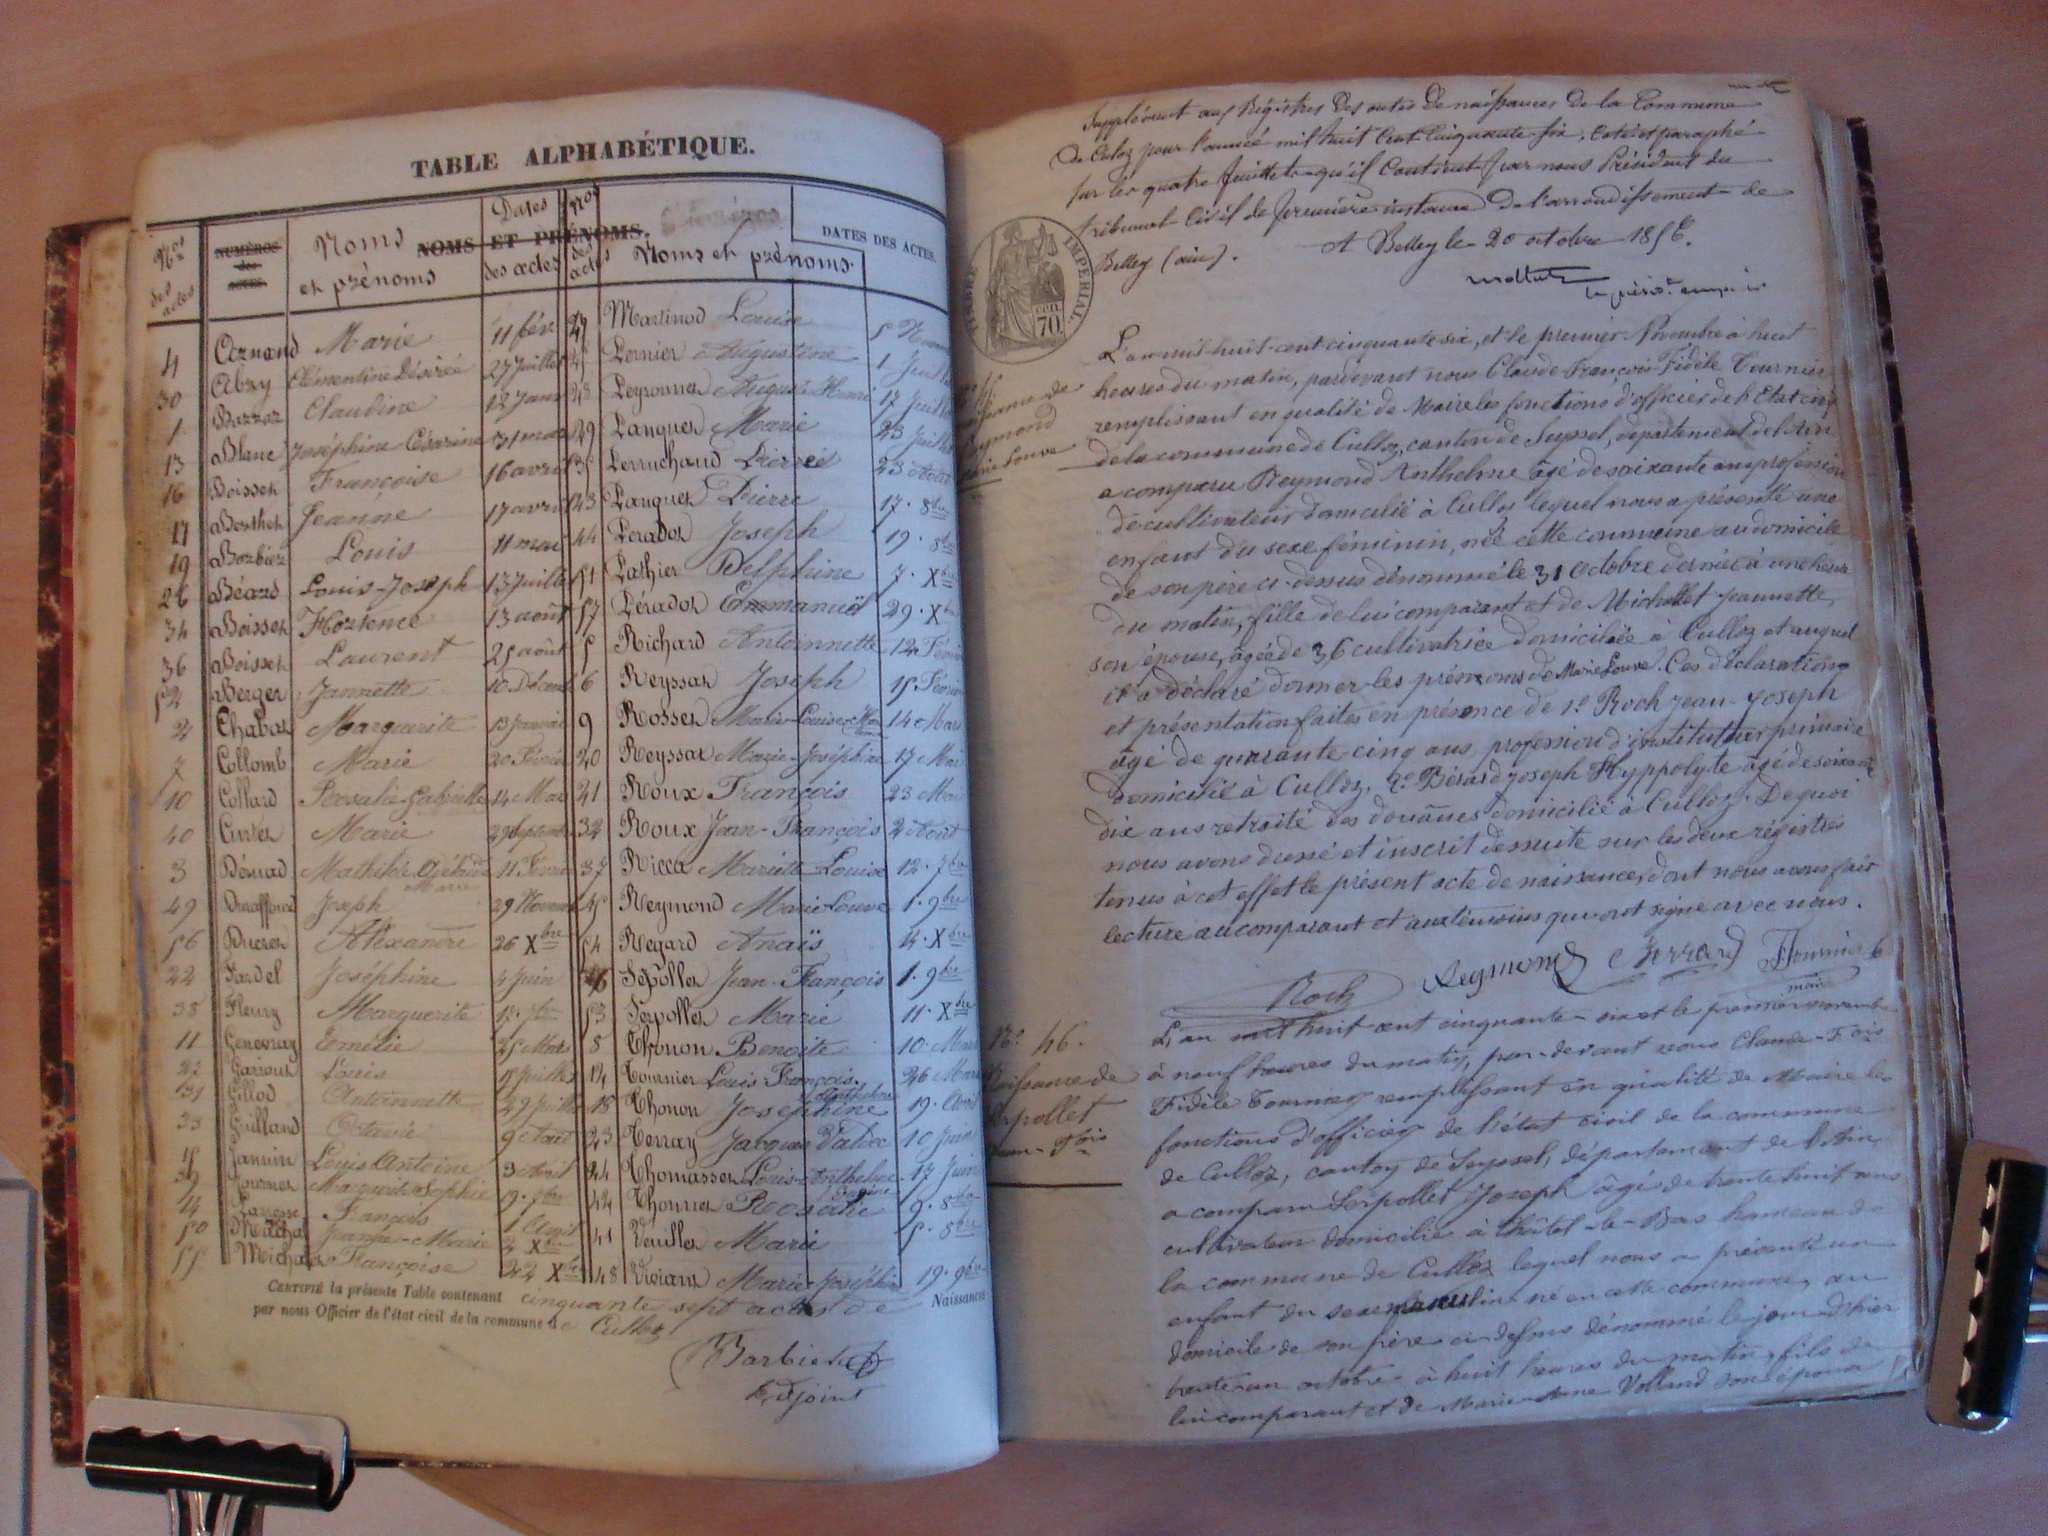 TABLE ALPHABÉTIQUE.
Nos des actes
NUMÉROS des ACTES
Noms et prénoms
NOMS ET PRÉNOMS.
Dates des actes
Nos des actes
Noms et prénoms.
DATES DES ACTES.
4 Marie 11 fév
30 Abry Clémentine Désirée 27 Juillet
1 Claudine 12 Janv
13 Blanc Joséphine Césarine 31 mar
16 Boisset Françoise 16 avril
17 Berthet Jeanne 17 avril
19 Barbier Louis 11 mai
26 Béard Louis-Joseph 13 Juillet
34 Boisset Hortence 13 août
36 Boisset Laurent 25 août
52 Berger Jannette 10 Décemb
2 Chabot Marguerite 13 Janvier
7 Collomb Marie 20 Février
10 Collard Rosalie Gabrielle 14 Mar
40 Marie 29 Septembre
3 Mathilde 11 Février
49 Joseph 29 Novemb
56 Ducret Alexandre 26 Xbre
22 Fardel Joséphine 4 Juin
38 Fleury Marguerite
11 Genevray Emélie 25 Mars
Louis Juillet
31 Gillod Antoinnette 29 Juillet
33 Guilland Octavie 9 Août
15 Janin Louis Antoine 3 Avril
39 Marguerite Sophie 19. 7bre
14 François 1 Avril
50 Machet Jeanne-Marie 2 Xbre
55 Michaud Françoise 22 Xbre
Martinod Louise 5 Novem
Augustine 1 Juillet
28 Peyronnet Auguste Henri 17 Juillet
29 Panquet Marie 23 Juillet
35 Perruchaud Pierre 23 Août
43 Panquet Pierre 17. 8bre
44 Peradot Joseph 19. 8bre
51 Pathier Delphine 7. Xbre
57 Péradot Emmanuël 29. Xbre
5 Richard Antoinnette 12 Février
6 Reyssat Joseph 15 Février
9 Rosset Marie-Louise 14 Mars
20 Reyssat Marie-Joséphine 17 Mai
21 Roux François 23 Mai
32 Roux Jean-François 2 Août
37 Ricca Mariette Louise 12. 7bre
45 Reymond Marie Louve 1. 9bre
54 Regard Anaïs Xbre
46 Serpollet Jean-François 1. 9bre
53 Serpollet Marie 11. Xbre
8 Thonon Benoite 10. Mars
12 Tournier Louis François 26 Mars
18 Thonon Joséphine 19. Avril
23 Terray Jacques 10 Juin
24 Thomasset Louis-Anthelme 17 Juin
42 Rosalie 9. 8bre
41 Veuillet Marie 5. 8bre
48 Vivian Marie-Joséphine 19. 9bre
CERTIFIÉ la présente Table contenant cinquante sept actes de Naissances
par nous Officier de l'état civil de la commune de Culloz
Barbier
adjoint
Supplément aux Régistres des actes de naissances de la Commune
de Culoz pour l'année mil huit cent cinquante-six, coté et paraphé
sur les quatre feuillets qu'il contient par nous Président du
tribunal civil de première instance de l'arrondissement de
Belley (ain).
A Belley le 20 octobre 1856.
TIMBRE IMPÉRIAL
70 CEN.
Naissance de
Reymond
Marie Louve
L'an mil-huit-cent cinquante six, et le premier Novembre à huit
heures du matin, pardevant nous Claude-François Fidèle Tournier
remplissant en qualité de Maire les fonctions d'officier de l'Etat civil
de la commune de Culloz, canton de Seyssel, département de l'Ain
a comparu Reymond Anthelme âgé de soixante ans profession
de cultivateur domicilié à Culloz lequel nous a présenté une
enfant du sexe féminin, née cette commune au domicile
de son père ci-dessus dénommé le 31 Octobre dernier à une heure
du matin, fille de lui comparant et de Michallet Jeannette
son épouse, agée de 36 cultivatrice domiciliée à Culloz et auquel
il a déclaré donner les prénoms de Marie Louve. Ces déclaration
et présentation faites en présence de 1º Roch Jean-Joseph
agé de quarante-cinq ans, profession d'instituteur primaire
domicilié à Culloz, 2º Bérard Joseph Hyppolyte agé de soixante
dix ans retraité des douanes domicilié à Culloz. De quoi
nous avons dressé et inscrit de suite sur les deux régistres
tenus à cet effet le présent acte de naissance, dont nous avons fait
lecture au comparant et aux témoins qui ont signé avec nous.
Roch Reymond Berrard Tournier
maire
No. 46.
Naissance de
Serpollet
Jean-Fois
L'an mil huit cent cinquante-six et le premier novembre
à neuf heures du matin, par-devant nous Claude-Fois
Fidèle Tournier remplissant en qualité de Maire les
fonctions d'officier de l'état civil de la commune
de Culloz, canton de Seyssel, département de l'Ain,
a comparu Serpollet Joseph âgé de trente huit ans
cultivateur domicilié à Châtel-le-Bas hameau de
la commune de Culloz lequel nous a présenté un
enfant du sexe masculin né en cette commune, au
domicile de son père ci-dessus dénommé le jour d'hier
trente-un octobre à huit heures du matin, fils de
lui comparant et de Marie-Anne Volland son épouse